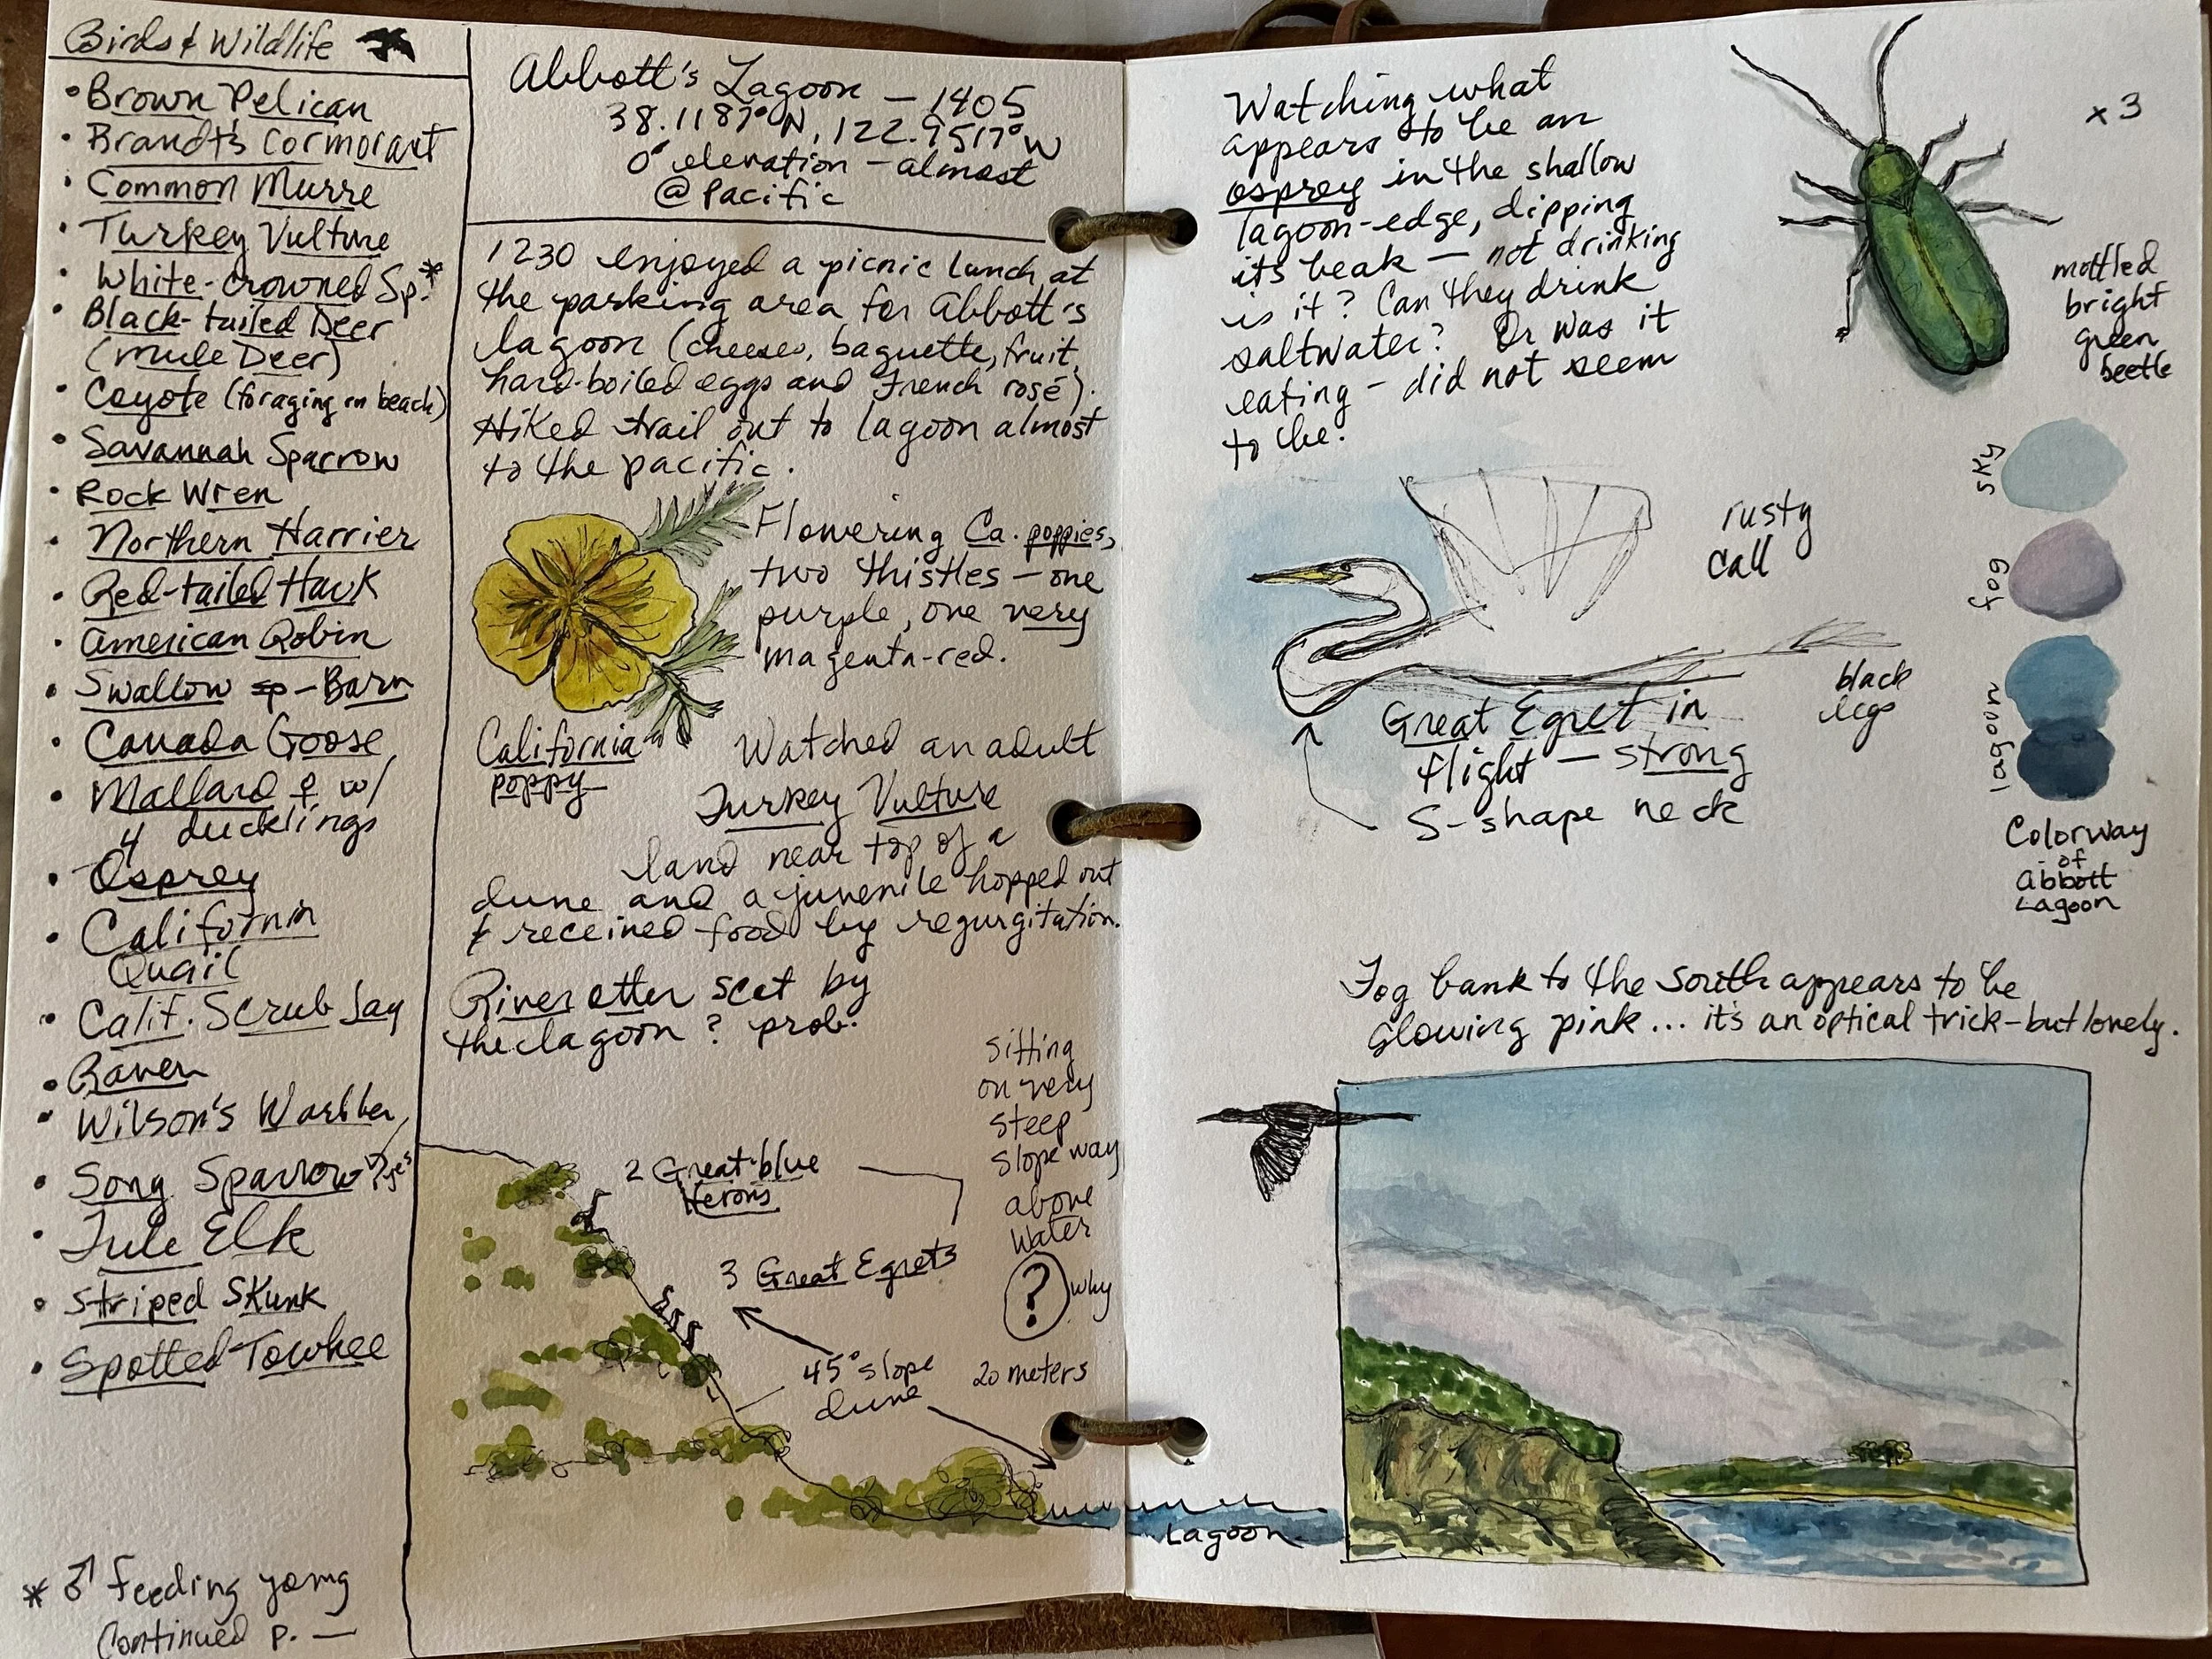 Birds & Wildlife
• Brown Pelican
• Brandt's Cormorant
• Common Murre
• Turkey Vulture
• White-crowned Sp.*
• Black-tailed Deer
(Mule Deer)
• Coyote (foraging on beach)
• Savannah Sparrow
• Rock Wren
• Northern Harrier
• Red-tailed Hawk
• American Robin
• Swallow sp - Barn
• Canada Goose
• Mallard ♀ w/
4 ducklings
• Osprey
• California
Quail
• Calif. Scrub Jay
• Raven
• Wilson's Warbler
• Song Sparrow
• Tule Elk
• Striped Skunk
• Spotted Towhee
* ♂ Feeding young
Continued p. —
Abbott's Lagoon — 1405
38.1187°N, 122.9517°W
0' elevation - almost
@ Pacific
1230 enjoyed a picnic lunch at
the parking area for Abbott's
lagoon (cheese, baguette, fruit,
hard-boiled eggs and French rosé).
Hiked trail out to lagoon almost
to the pacific.
Flowering Ca. poppies,
two thistles — one
purple, one very
magenta-red.
California
poppy
Watched an adult
Turkey Vulture
land near top of a
dune and a juvenile hopped out
& received food by regurgitation.
River otter scat by
the lagoon? prob.
Sitting
on very
steep
slope way
above
water
? why
2 Great-blue
Herons
3 Great Egrets
45° slope
dune
20 meters
Lagoon
Watching what
appears to be an
osprey in the shallow
lagoon-edge, dipping
its beak — not drinking
is it? Can they drink
saltwater? Or was it
eating - did not seem
to be.
x3
mottled
bright
green
beetle
rusty
call
black
legs
Great Egret in
flight — strong
S-shape neck
sky
fog
lagoon
Colorway
of
Abbott
Lagoon
Fog bank to the South appears to be
glowing pink... it's an optical trick-but lovely.